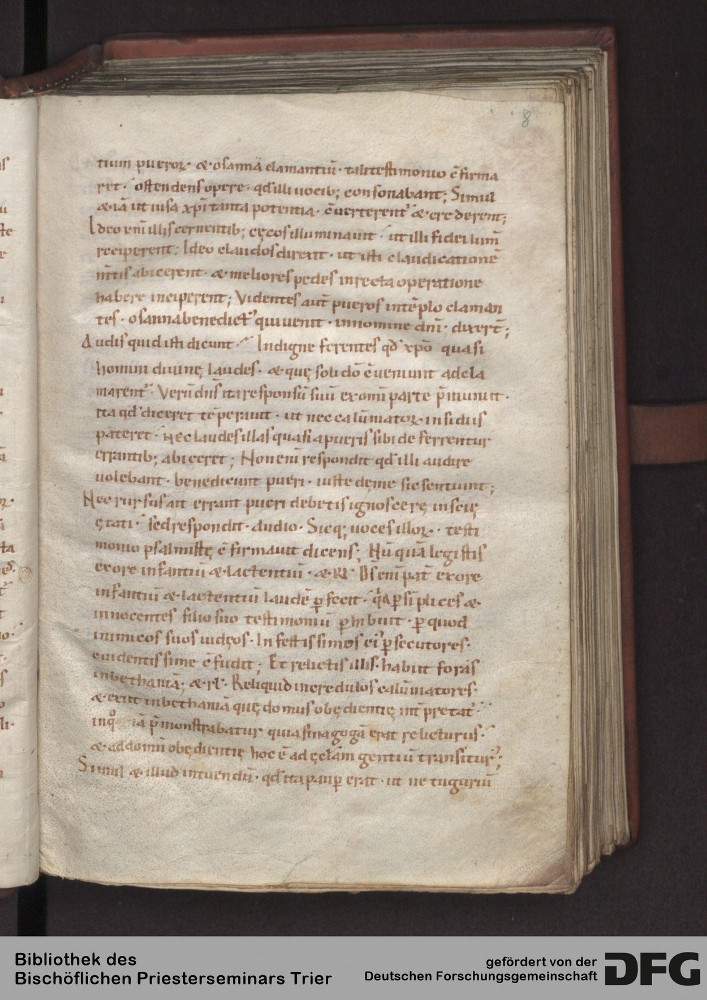 8
tium pueroꝝ · & osannā clamantiū · tali testimonio c̄firma
ret · ostendens opere · qđ illi vocib; consonabant; Simul
& iā ut uisa xp̄i tanta potentia · c̄uerterent᷑ & crederent;
Ideo em̄ illis cernentib; cęcos illuminauit · ut illi fidei lum̄
reciperent; Ideo claudos direxit · ut isti claudicationē
m̄tis abicerent · & meliores pedes in recta operatione
habere inciperent; Videntes aut̄ pueros in tēplo claman
tes · osanna benedict᷒ qui uenit · in nomine dn̄i · dixer̄t;
Audis quid isti dicunt · Indigne ferentes qđ xp̄o quasi
homini diuinę laudes · & quę soli dō c̄ueniunt adcla
marent᷑ · Verū dn̄s ita responsū suū ex om̄i parte p̄muniit ·
ita qđ diceret tēperauit · ut nec calūmatoꝝ insidiis
pateret · Nec laudes illas quasi a pueris sibi deferrentur
errantib; abiceret; Non eni respondit qđ illi audire
uolebant · benedicunt pueri · iuste de me sic sentiunt;
Nec rursus ait errant pueri debetis ignoscere inscię
ętati · sed respondit · audio · Sicq; uoces illoꝝ · testi
monio psalmistę c̄firmauit dicens; Nūquā legistis
ex ore infantiū & lactentiū · & rł · Ds̄ eni pat̄ ex ore
infantiū & lactentiū laudē ꝑfecit · q̄a ꝑ simplices &
innocentes filio suo testimoniū ꝑhibuit · ꝑ quod
inimicos suos iudęos · Infestissimos ei᷒ ꝑsecutores ·
euidentissime c̄fudit; Et relictis illis · habiit foras
in bethaniā; & rł · Reliquid incredulos calūmatores ·
& exiit in bethaniā quę domus obędientię int̄pretat᷑ ·
p̄monstrabatur quia sinagogā erat relicturus ·
& ad domū obędientię hoc ē ad ęclām gentiū transiturus;
Simul & illud intuendū · qđ ita pauꝑ erat · ut ne tuguriū
Bibliothek des
Bischöflichen Priesterseminars Trier
gefördert von der
Deutschen Forschungsgemeinschaft
DFG